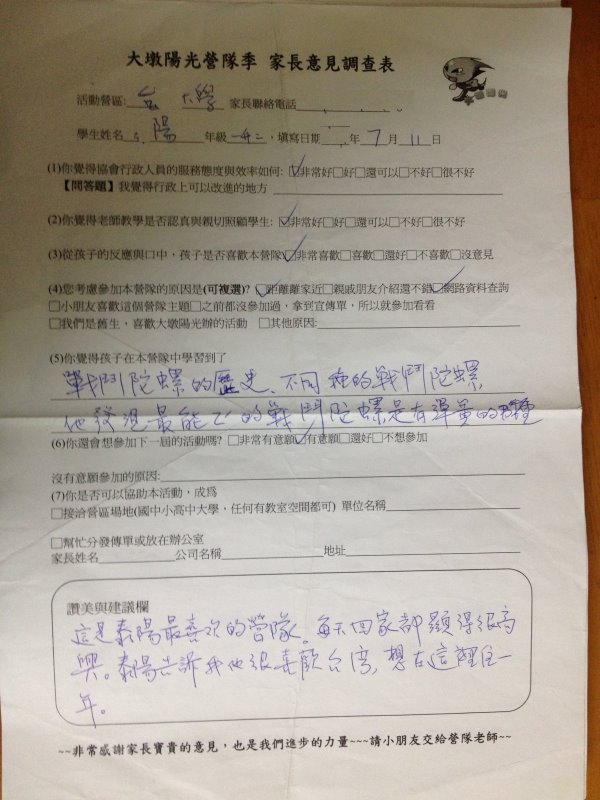 大墩陽光營隊季 家長意見調查表
活動營區: 台 大學 家長聯絡電話
學生姓名 陽 年級 一升二 ,填寫日期 年 7 月 11 日
(1)你覺得協會行政人員的服務態度與效率如何: ☑非常好□好□還可以□不好□很不好
【問答題】我覺得行政上可以改進的地方
(2)你覺得老師教學是否認真與親切照顧學生: ☑非常好□好□還可以□不好□很不好
(3)從孩子的反應與口中,孩子是否喜歡本營隊 ☑非常喜歡□喜歡□還好□不喜歡□沒意見
(4)您考慮參加本營隊的原因是(可複選)? ☑距離離家近□親戚朋友介紹還不錯☑網路資料查詢
□小朋友喜歡這個營隊主題□之前都沒參加過,拿到宣傳單,所以就參加看看
□我們是舊生,喜歡大墩陽光辦的活動 □其他原因:
(5)你覺得孩子在本營隊中學習到了
戰鬥陀螺的歷史、不同種的戰鬥陀螺
他發現最能飞的戰鬥陀螺是有彈簧的那種
(6)你還會想參加下一屆的活動嗎? □非常有意願☑有意願□還好□不想參加
沒有意願參加的原因:
(7)你是否可以協助本活動,成為
□接洽營區場地(國中小高中大學,任何有教室空間都可) 單位名稱
□幫忙分發傳單或放在辦公室
家長姓名 公司名稱 地址
讚美與建議欄
這是泰陽最喜欢的營隊。每天回家都顯得很高
興。泰陽告訴我他很喜歡台湾,想在這裡住一
年。
~~非常感謝家長寶貴的意見,也是我們進步的力量~~~請小朋友交給營隊老師~~